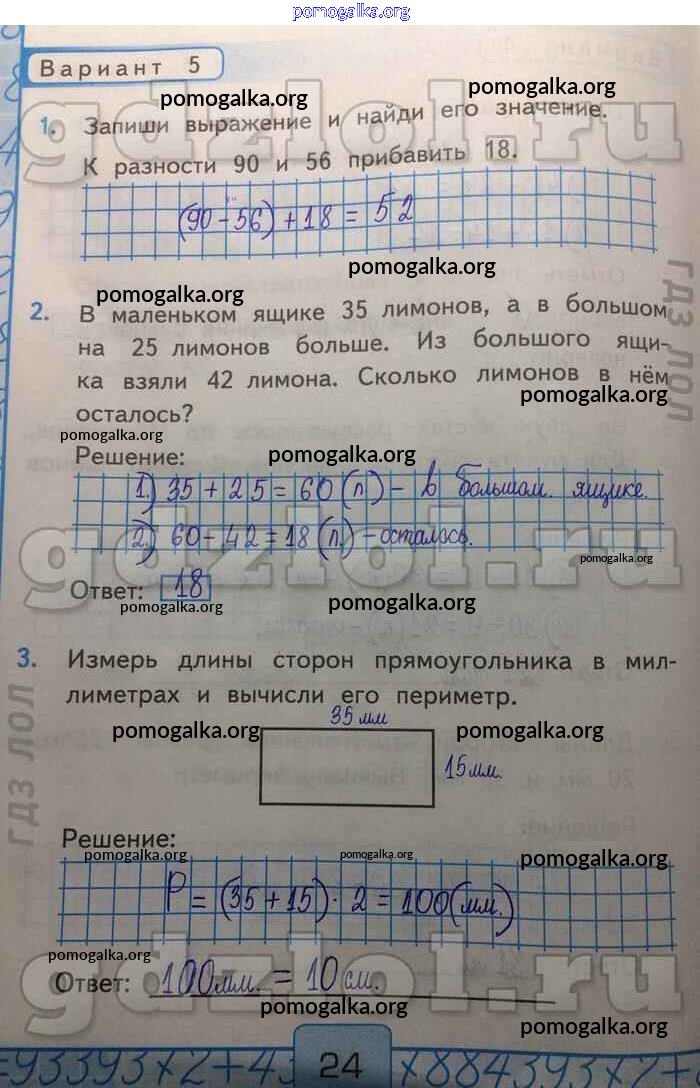 pomogalka.org
Вариант 5
pomogalka.org
pomogalka.org
gdzlol.ru
1. Запиши выражение и найди его значение.
К разности 90 и 56 прибавить 18.
(90-56)+18=52
pomogalka.org
гдз лол
pomogalka.org
2. В маленьком ящике 35 лимонов, а в большом
на 25 лимонов больше. Из большого ящи-
ка взяли 42 лимона. Сколько лимонов в нём
pomogalka.org
осталось?
pomogalka.org
pomogalka.org
Решение:
1.) 35+25=60(л.)- в большом. ящике.
gdzlol.ru
2.) 60-42=18(л.)-осталось.
pomogalka.org
Ответ: 18
pomogalka.org
pomogalka.org
3. Измерь длины сторон прямоугольника в мил-
лиметрах и вычисли его периметр.
35 мм
pomogalka.org
pomogalka.org
гдз лол
15мм.
Решение:
pomogalka.org
pomogalka.org
pomogalka.org
P=(35+15)·2=100(мм.)
pomogalka.org
gdzlol.ru
Ответ: 100мм.=10см.
pomogalka.org
pomogalka.org
=93393×2+43
24
×884393×2+